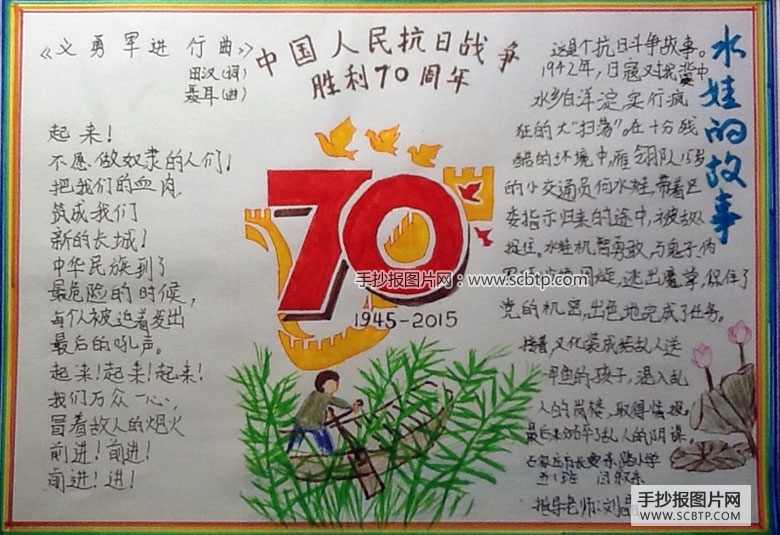 《义勇军进行曲》
田汉(词)
聂耳(曲)
起来!
不愿做奴隶的人们!
把我们的血肉
筑成我们
新的长城!
中华民族到了
最危险的时候,
每个人被迫着发出
最后的吼声。
起来!起来!起来!
我们万众一心,
冒着敌人的炮火
前进!前进!
前进!进!
中国人民抗日战争
胜利70周年
70
1945-2015
手抄报图片网:www.scbtp.com
水娃的故事
这是个抗日斗争故事。
1942年,日寇对我冀中
水乡白洋淀,实行疯
狂的大"扫荡"。在十分残
酷的环境中,雁翎队15岁
的小交通员何水娃,带着区
委指示归来的途中,被敌人
捉住。水娃机智勇敢,与鬼子、伪
周旋,逃出魔掌,保住了
党的机密,出色地完成了任务。
接着,又化装成给敌人送
甲鱼的孩子,混入敌
人的岗楼,取得情报。
最后粉碎了敌人的阴谋。
石家庄市长安东路小学
五1班 闫
指导老师:刘
手抄报图片网
WWW.SCBTP.COM